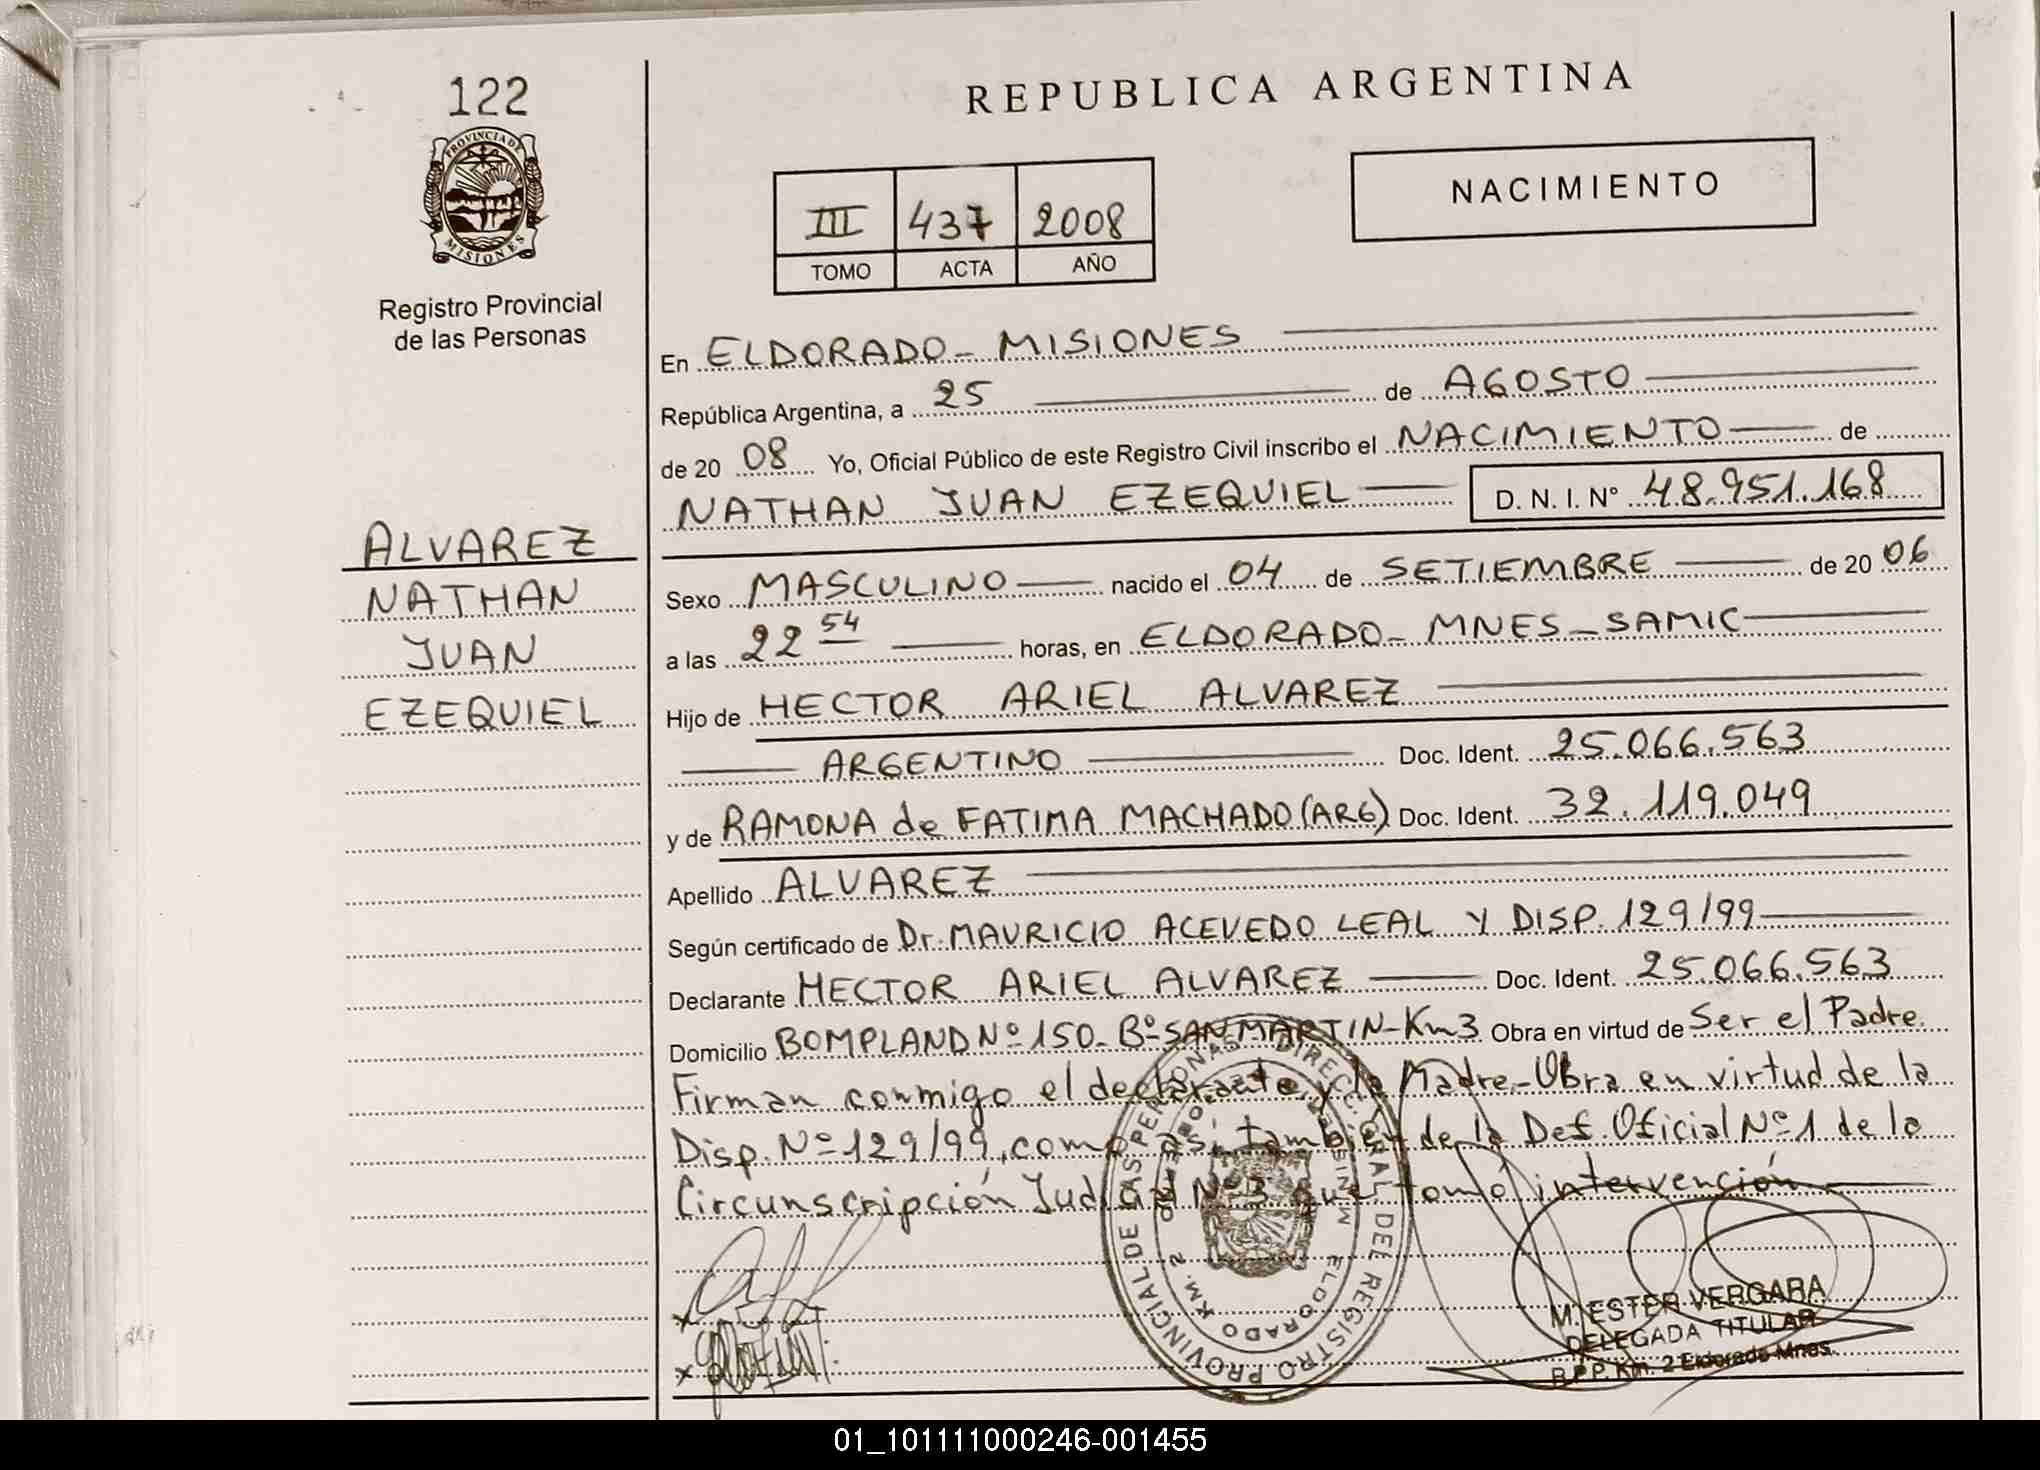 122
PROVINCIA DE
MISIONES
Registro Provincial
de las Personas
ALVAREZ
NATHAN
JUAN
EZEQUIEL
REPUBLICA ARGENTINA
III 437 2008
TOMO ACTA AÑO
NACIMIENTO
En ELDORADO - MISIONES
República Argentina, a 25 de AGOSTO
de 20 08 Yo, Oficial Público de este Registro Civil inscribo el NACIMIENTO de
NATHAN JUAN EZEQUIEL D. N. I. N° 48.951.168
Sexo MASCULINO nacido el 04 de SETIEMBRE de 20 06
a las 22 54 horas, en ELDORADO - MNES - SAMIC
Hijo de HECTOR ARIEL ALVAREZ
ARGENTINO Doc. Ident. 25.066.563
y de RAMONA de FATIMA MACHADO (ARG) Doc. Ident. 32.119.049
Apellido ALVAREZ
Según certificado de Dr. MAURICIO ACEVEDO LEAL Y DISP. 129/99
Declarante HECTOR ARIEL ALVAREZ Doc. Ident. 25.066.563
Domicilio BOMPLAND Nº 150 - Bº SAN MARTIN - Km 3 Obra en virtud de Ser el Padre.
Firman conmigo el declarante y la Madre - Obra en virtud de la
Disp. Nº 129/99, como así también de la Def. Oficial Nº 1 de la
Circunscripción Judicial Nº 3 que tomó intervención
DIREC. GRAL. DEL REGISTRO PROVINCIAL DE LAS PERSONAS
ELDORADO KM. 2
M. ESTER VERGARA
DELEGADA TITULAR
R.P.P. Km. 2 Eldorado Mnes.
01_101111000246-001455